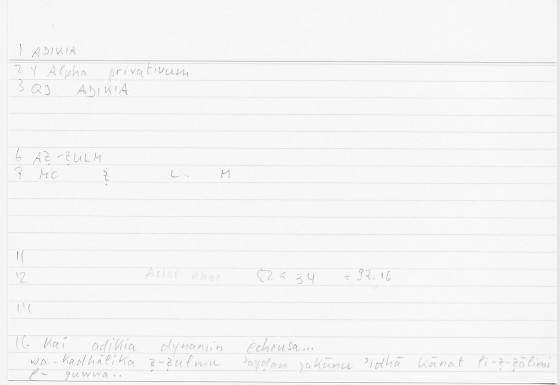 1 ADIKIA
2 Y Alpha privativum
3 QJ ADIKIA
6 AẒ-ẒULM
7 MC Ẓ L M
11
12 = 92.16
14
16. Kai adikia dynamin echousa...
wa-kadhālika ẓ-ẓulmu ʾayḍan yakūnu ʾidhā kānat li-ẓ-ẓālimi
l-quwwa..